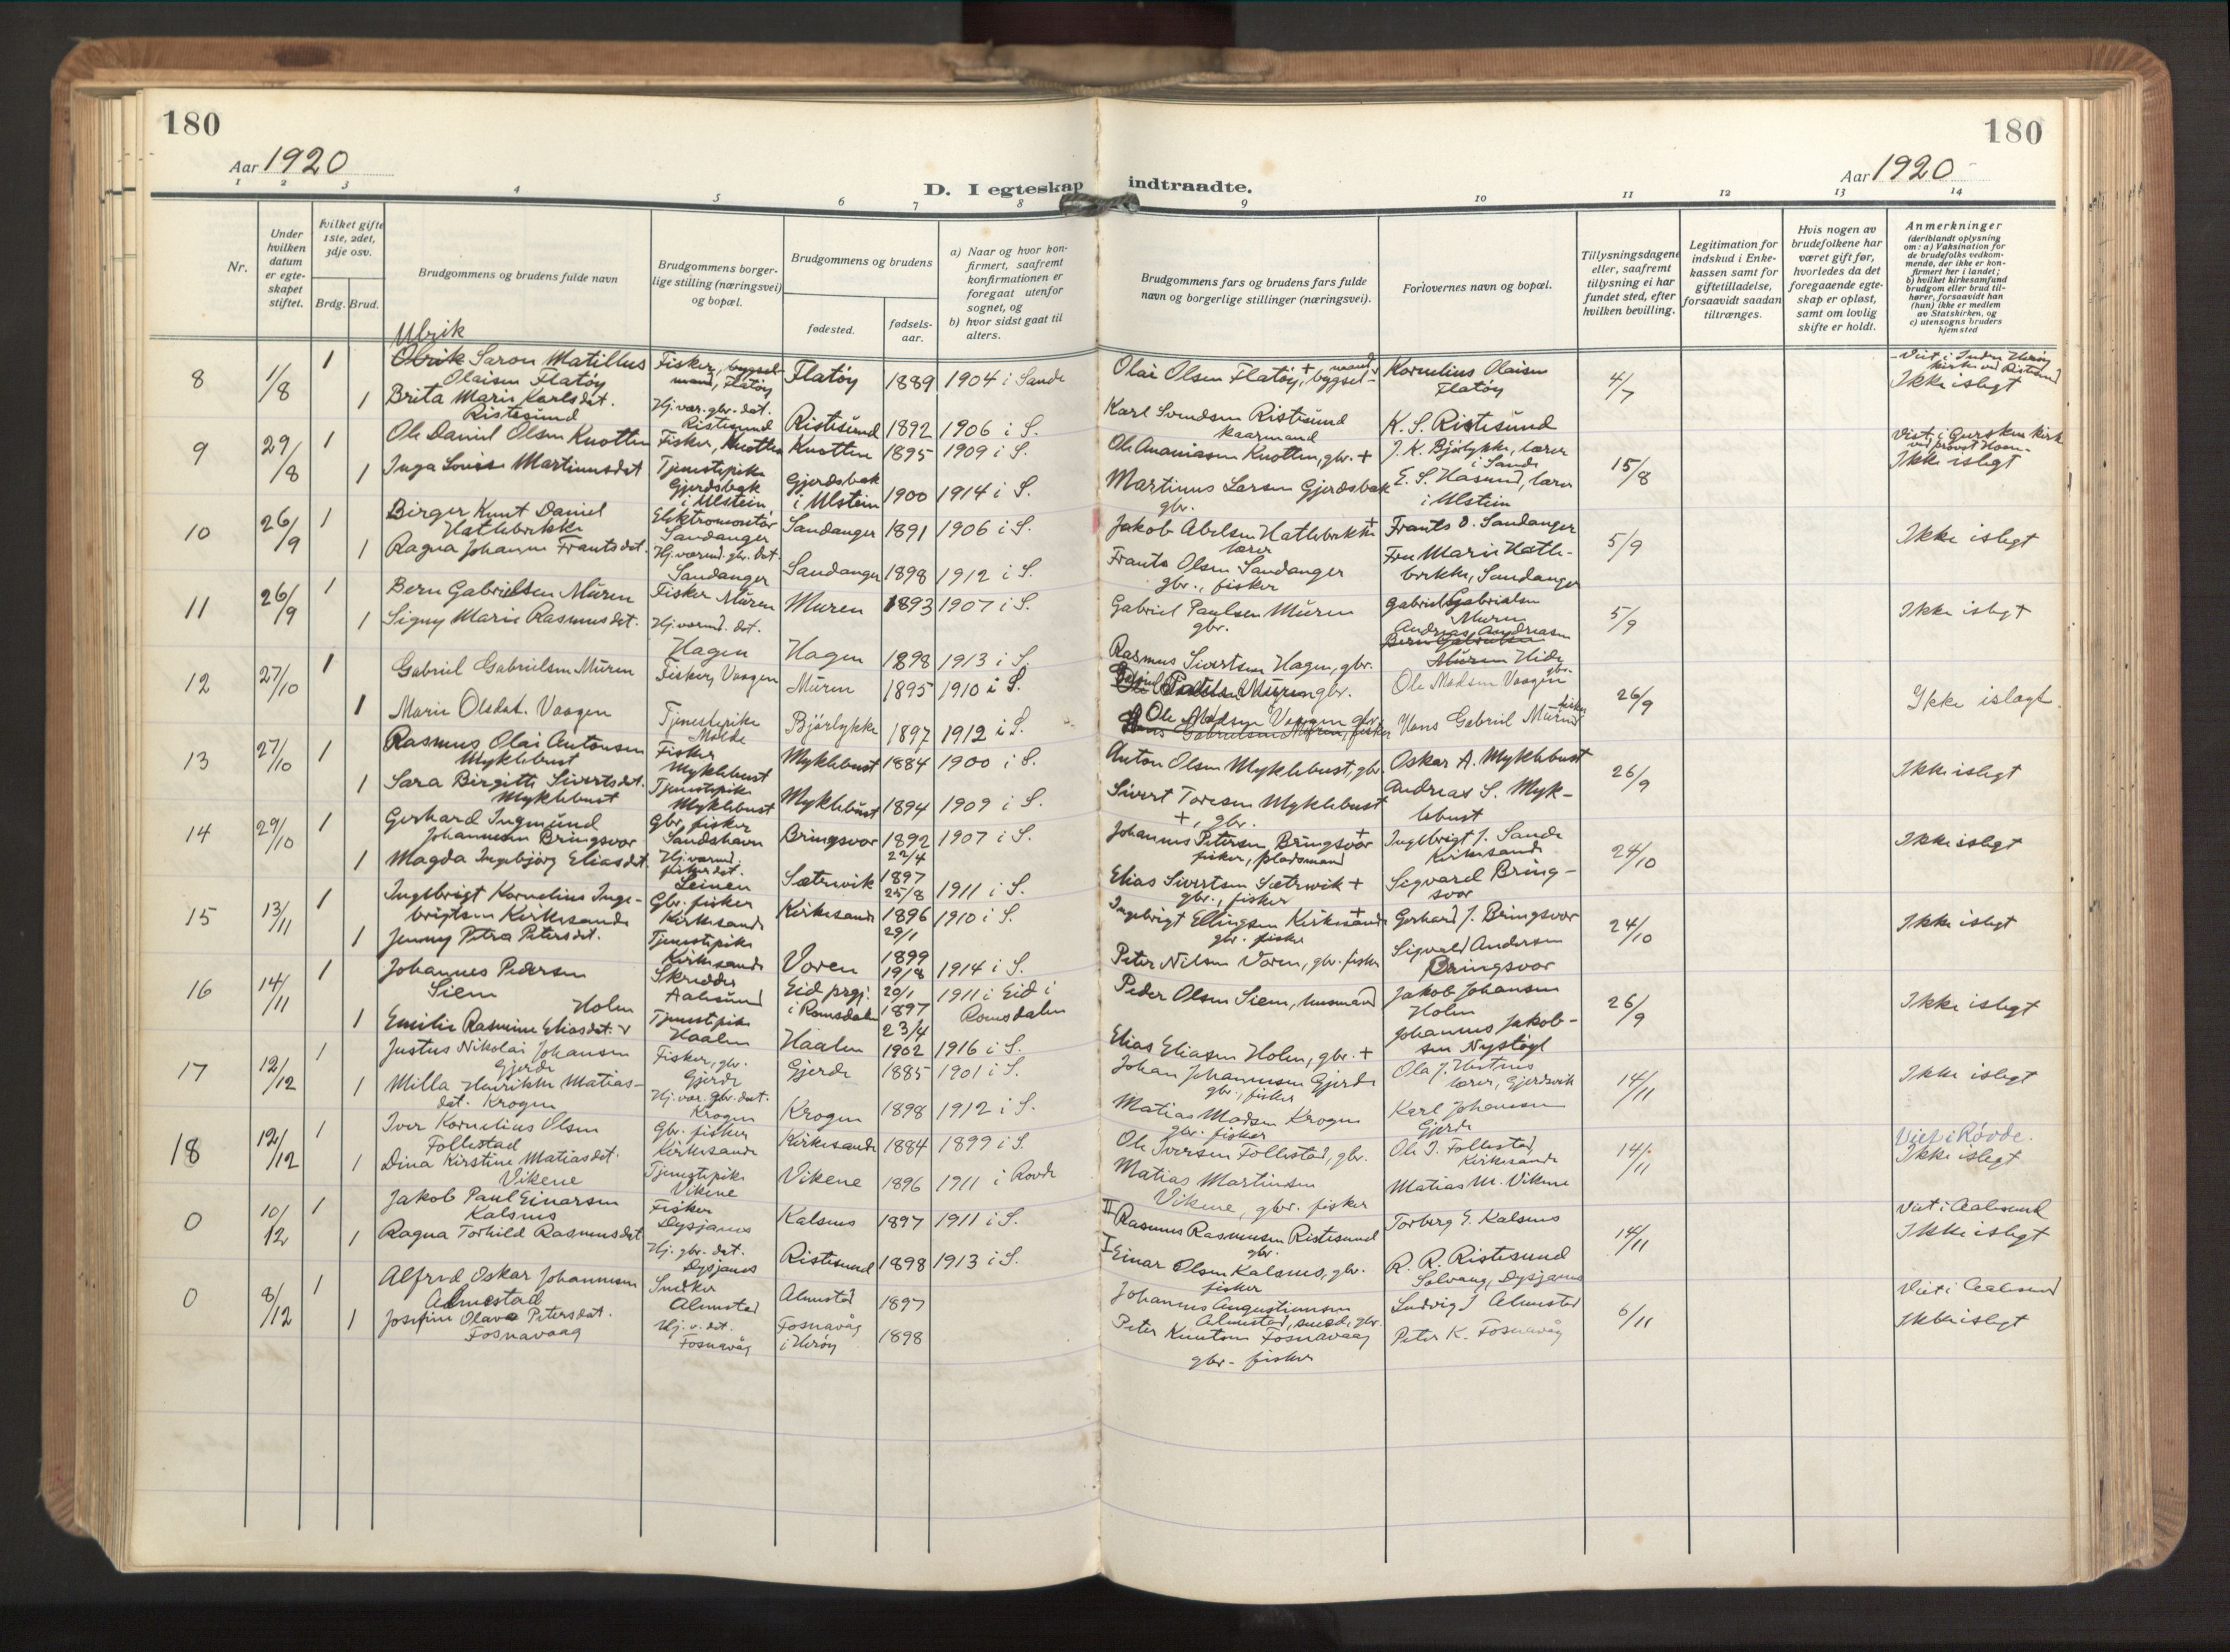 180
180
Aar 1920
Aar 1920
D. I egteskap indtraadte.
1 2 3 4 5 6 7 8 9 10 11 12 13 14
Nr.
Under hvilken datum er egte- skapet stiftet.
Hvilket gifte 1ste, 2det, 3dje osv.
Brdg. Brud.
Brudgommens og brudens fulde navn
Brudgommens borger- lige stilling (næringsvei) og bopæl.
Brudgommens og brudens
fødested.
fødsels- aar.
a) Naar og hvor kon- firmert, saafremt konfirmationen er foregaat utenfor sognet, og
b) hvor sidst gaat til alters.
Brudgommens fars og brudens fars fulde navn og borgerlige stillinger (næringsvei).
Forlovernes navn og bopæl.
Tillysningsdagene eller, saafremt tillysning ei har fundet sted, efter hvilken bevilling.
Legitimation for indskud i Enke- kassen samt for giftetilladelse, forsaavidt saadan tiltrænges.
Hvis nogen av brudefolkene har været gift før, hvorledes da det foregaaende egte- skap er opløst, samt om lovlig skifte er holdt.
Anmerkninger
(deriblandt oplysning om: a) Vaksination for de brudefolks vedkom- mende, der ikke er kon- firmert her i landet; b) hvilket kirkesamfund brudgom eller brud til- hører, forsaavidt han (hun) ikke er medlem av Statskirken, og c) utensogns bruders hjemsted
8 1/8 1 Ulrik
Olrik Saron Matillus Olaisen Flatøy
Fisker, bygsel- mand, Flatøy
Flatøy 1889 1904 i Sande
Olai Olsen Flatøy +, bygsel- mand
Kornelius Olaisen Flatøy
4/7
Viet i Indre Herøy kirke
Ikke islegt
1 Brita Marie Karlsdat. Ristesund
Hj.vær. gbr. dat. Ristesund
Ristesund 1892 1906 i S.
Karl Svendsen Ristesund kaarmand
K. S. Ristesund
9 29/8 1 Ole Daniel Olsen Knotten
Fisker, Knotten
Knotten 1895 1909 i S.
Ole Ananiasen Knotten, gbr. +
J. K. Bjørlykke, lærer i Sande
15/8
Viet i Gursken kirke
Ikke islegt
1 Inga Lovise Martinusdat
Tjenestepike Gjerdsbak i Ulstein
Gjerdsbak i Ulstein 1900 1914 i S.
Martinus Larsen Gjerdsbak gbr.
E. S. Hasund, lærer i Ulstein
10 26/9 1 Birger Knut Daniel Hatlebrekke
Elektromontør Sandanger
Sandanger 1891 1906 i S.
Jakob Abelsen Hatlebrekke + lærer
Frants O. Sandanger
5/9
Ikke islegt
1 Ragna Johanne Frantsdat.
Hj.værend. gbr. dat. Sandanger
Sandanger 1898 1912 i S.
Frants Olsen Sandanger gbr., fisker
Fru Marie Hatle- brekke, Sandanger
11 26/9 1 Bern Gabrielsen Muren
Fisker Muren
Muren 1893 1907 i S.
Gabriel Paulsen Muren gbr.
Gabriel Gabrielsen Muren
5/9
Ikke islegt
1 Signy Marie Rasmusdat.
Hj.værend. dat. Hagen
Hagen 1898 1913 i S.
Rasmus Sivertsen Hagen, gbr.
Andreas Andreasen
Bern Gabrielsen
Muren
12 27/10 1 Gabriel Gabrielsen Muren
Fisker, Vaagen
Muren 1895 1910 i S.
Gabriel Paulsen Muren gbr.
Ole Madsen Vaagen gbr.
26/9
Ikke islegt.
1 Marie Olsdat. Vaagen
Tjenestepike Molde
Bjørlykke 1897 1912 i S.
Ole Madsen Vaagen gbr.
Hans Gabrielsen Muren, fisker
Hans Gabriel Muren fisker
13 27/10 1 Rasmus Olai Antonsen Myklebust
Fisker Myklebust
Myklebust 1884 1900 i S.
Anton Olsen Myklebust, gbr.
Oskar A. Myklebust
26/9
Ikke islegt
1 Sara Birgitte Sivertsdat. Myklebust
Tjenestepike Myklebust
Myklebust 1894 1909 i S.
Sivert Toresen Myklebust +, gbr.
Andreas S. Myk- lebust
14 29/10 1 Gerhard Ingmund Johannesen Bringsvor
Gbr, fisker Sandshavn
Bringsvor 1892 22/4 1907 i S.
Johannes Petersen Bringsvor + fisker, pladsmand
Ingebrigt J. Sande Kirkesande
24/10
Ikke islegt
1 Magda Ingebjørg Eliasdat.
Hj.værend. fiskerdat. Leinen
Sætrevik 1897 25/8 1911 i S.
Elias Sivertsen Sætrevik + gbr., fisker
Sigvard Bring- svor
15 13/11 1 Ingebrigt Kornelius Inge- brigtsen Kirkesande
Gbr. fisker Kirkesande
Kirkesande 1896 29/1 1910 i S.
Ingebrigt Ellingsen Kirkesande + gbr. fisker
Gerhard J. Bringsvor
24/10
Ikke islegt
1 Jenny Petra Petersdat.
Tjenestepike Kirkesande
Voren 1899 19/8 1914 i S.
Peter Nilsen Voren, gbr. fisker
Sigvald Andersen Bringsvor
16 14/11 1 Johannes Pedersen Siem
Skredder Aalesund
Eid prgj. i Romsdalen 20/1 1897 1911 i Eid i Romsdalen
Peder Olsen Siem, husmand
Jakob Johansen Holm
26/9
Ikke islegt
1 Emilie Rasmine Eliasdat. Holm
Tjenestepike Haalen
Haalen 23/4 1902 1916 i S.
Elias Eliasen Holm, gbr. +
Johannes Jakob- sen Nystøyl
17 12/12 1 Justus Nikolai Johansen Gjerde
Fisker, gbr. Gjerde
Gjerde 1885 1901 i S.
Johan Johannesen Gjerde gbr., fisker
Ola J. lærer, Gjerdsvik
14/11
Ikke islegt
1 Milla Henrikke Matias- dat. Krogen
Hj.vær. gbr. dat. Krogen
Krogen 1898 1912 i S.
Matias Madsen Krogen gbr. fisker
Karl Johansen Gjerde
18 12/12 1 Iver Kornelius Olsen Follestad
Gbr. fisker Kirkesande
Kirkesande 1884 1899 i S
Ole Iversen Follestad, gbr.
Ole I. Follestad, Kirkesande
14/11
Viet i Rovde.
Ikke islegt
1 Dina Kirstine Matiasdat. Vikene
Tjenestepike Vikene
Vikene 1896 1911 i Rovde
Matias Martinsen Vikene, gbr. fisker
Matias M. Vikene
0 10/12 1 Jakob Paul Einarsen Kalsnes
Fisker Dysjanes
Kalsnes 1897 1911 i S.
II Rasmus Rasmussen Ristesund gbr.
Torberg E. Kalsnes
14/11
Viet i Aalesund
Ikke islegt
1 Ragna Torhild Rasmusdat
Hj. gbr. dat. Dysjanes
Ristesund 1898 1913 i S.
I Einar Olsen Kalsnes, gbr. fisker
R. R. Ristesund Solvang, Dysjanes
0 8/12 1 Alfred Oskar Johannesen Almestad
Snekker Almestad
Almestad 1897
Johannes Augustinussen Almestad, smed, gbr.
Ludvig J Almestad
6/11
Viet i Aalesund
Ikke islegt
1 Josefine Olava Petersdat. Fosnavaag
Hj. v. dat. Fosnavåg
Fosnavåg i Herøy 1898
Peter Knutsen Fosnavaag gbr - fisker
Peter K. Fosnavåg